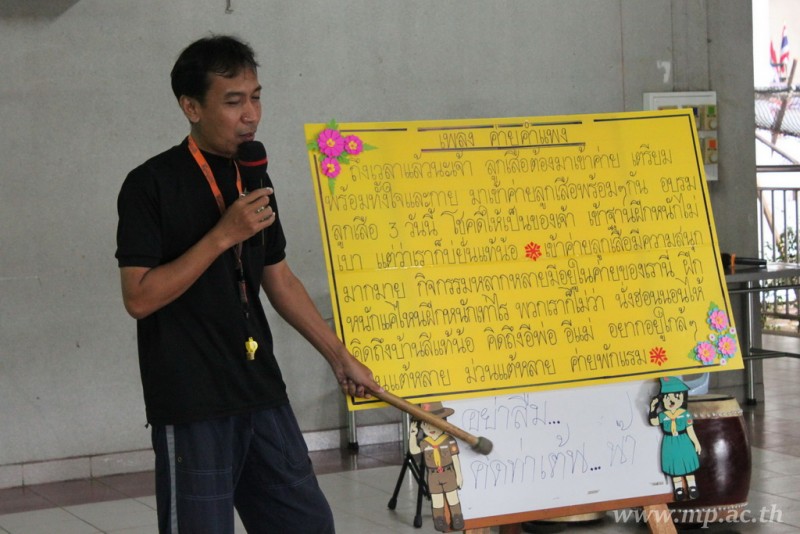 เพลง ค่ายคำแพง
ถึงเวลาแล้วนะเจ้า ลูกเสือต้องมาเข้าค่าย เตรียม
พร้อมทั้งใจและกาย มาเข้าค่ายลูกเสือพร้อมๆกัน อบรม
ลูกเสือ 3 วันนี้ โชคดีให้เป็นของเจ้า เข้าฐานฝึกหนักไม่
เบา แต่ว่าเราก็บ่ยั่นแท้น้อ เข้าค่ายลูกเสือมีความสนุก
มากมาย กิจกรรมหลากหลายมีอยู่ในค่ายของเรานี้ ฝึก
หนักแค่ไหนฝึกหนักเท่าไร พวกเราก็ไม่ว่า นั่งฮอนนอนไห้
คิดถึงบ้านสิแท้น้อ คิดถึงอีพ่อ อีแม่ อยากอยู่ใกล้ๆ
แต้หลาย ม่วนแต้หลาย ค่ายพักแรม
อย่าลืม...
คิดท่าเต้น...
www.mp.ac.th